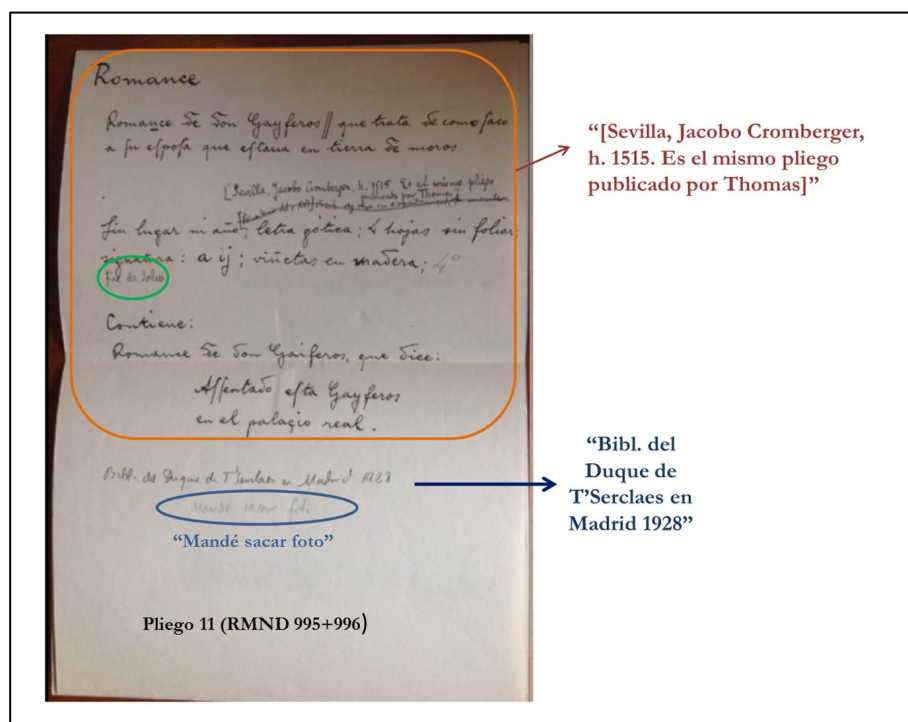 Romance
Romance de don Gayferos // que trata de como saco
a su esposa que estaua en tierra de moros
[Sevilla, Jacobo Cromberger, h. 1515. Es el mismo pliego
publicado por Thomas]
Sin lugar ni año; letra gótica; 4 hojas sin foliar;
signatura: a ij; viñetas en madera; 4º
Contiene:
Romance de don Gaiferos, que dice:
Assentado esta Gayferos
en el palaçio real.
Bibl. del Duque de T'Serclaes en Madrid 1928
Mandé sacar foto
“Mandé sacar foto”
Pliego 11 (RMND 995+996)
“[Sevilla, Jacobo Cromberger,
h. 1515. Es el mismo pliego
publicado por Thomas]”
“Bibl. del
Duque de
T’Serclaes en
Madrid 1928”